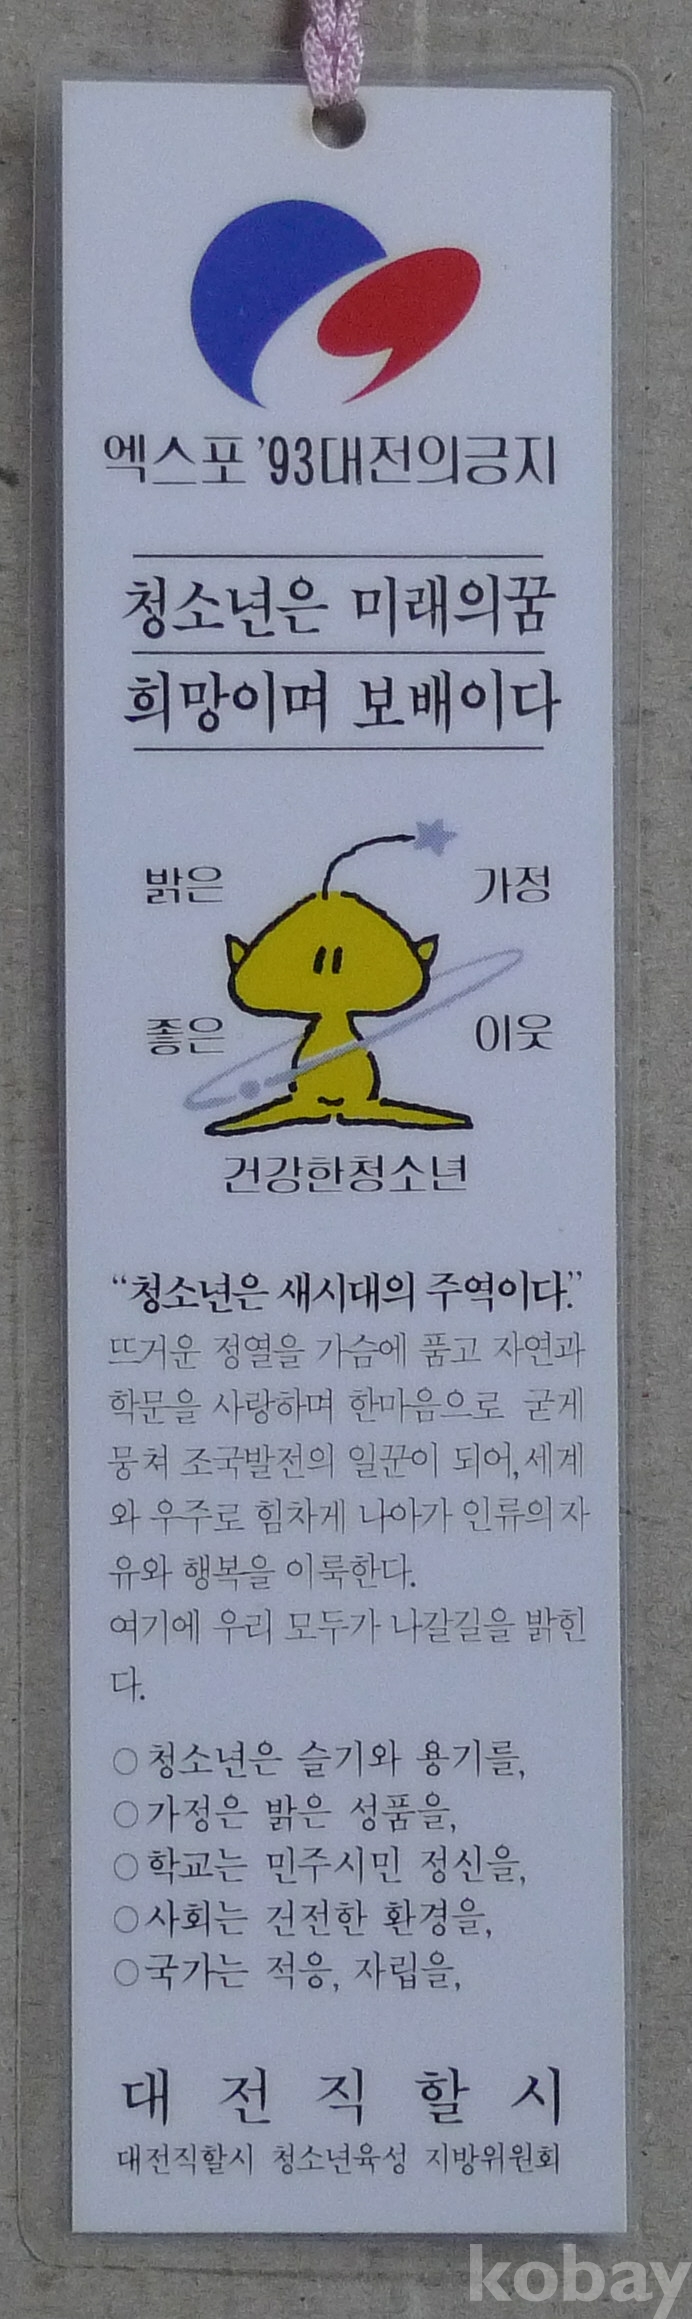 엑스포 '93대전의긍지
청소년은 미래의꿈
희망이며 보배이다
밝은 가정
좋은 이웃
건강한청소년
“청소년은 새시대의 주역이다.”
뜨거운 정열을 가슴에 품고 자연과
학문을 사랑하며 한마음으로 굳게
뭉쳐 조국발전의 일꾼이 되어, 세계
와 우주로 힘차게 나아가 인류의 자
유와 행복을 이룩한다.
여기에 우리 모두가 나갈길을 밝힌
다.
○청소년은 슬기와 용기를,
○가정은 밝은 성품을,
○학교는 민주시민 정신을,
○사회는 건전한 환경을,
○국가는 적응, 자립을,
대 전 직 할 시
대전직할시 청소년육성 지방위원회
kobay